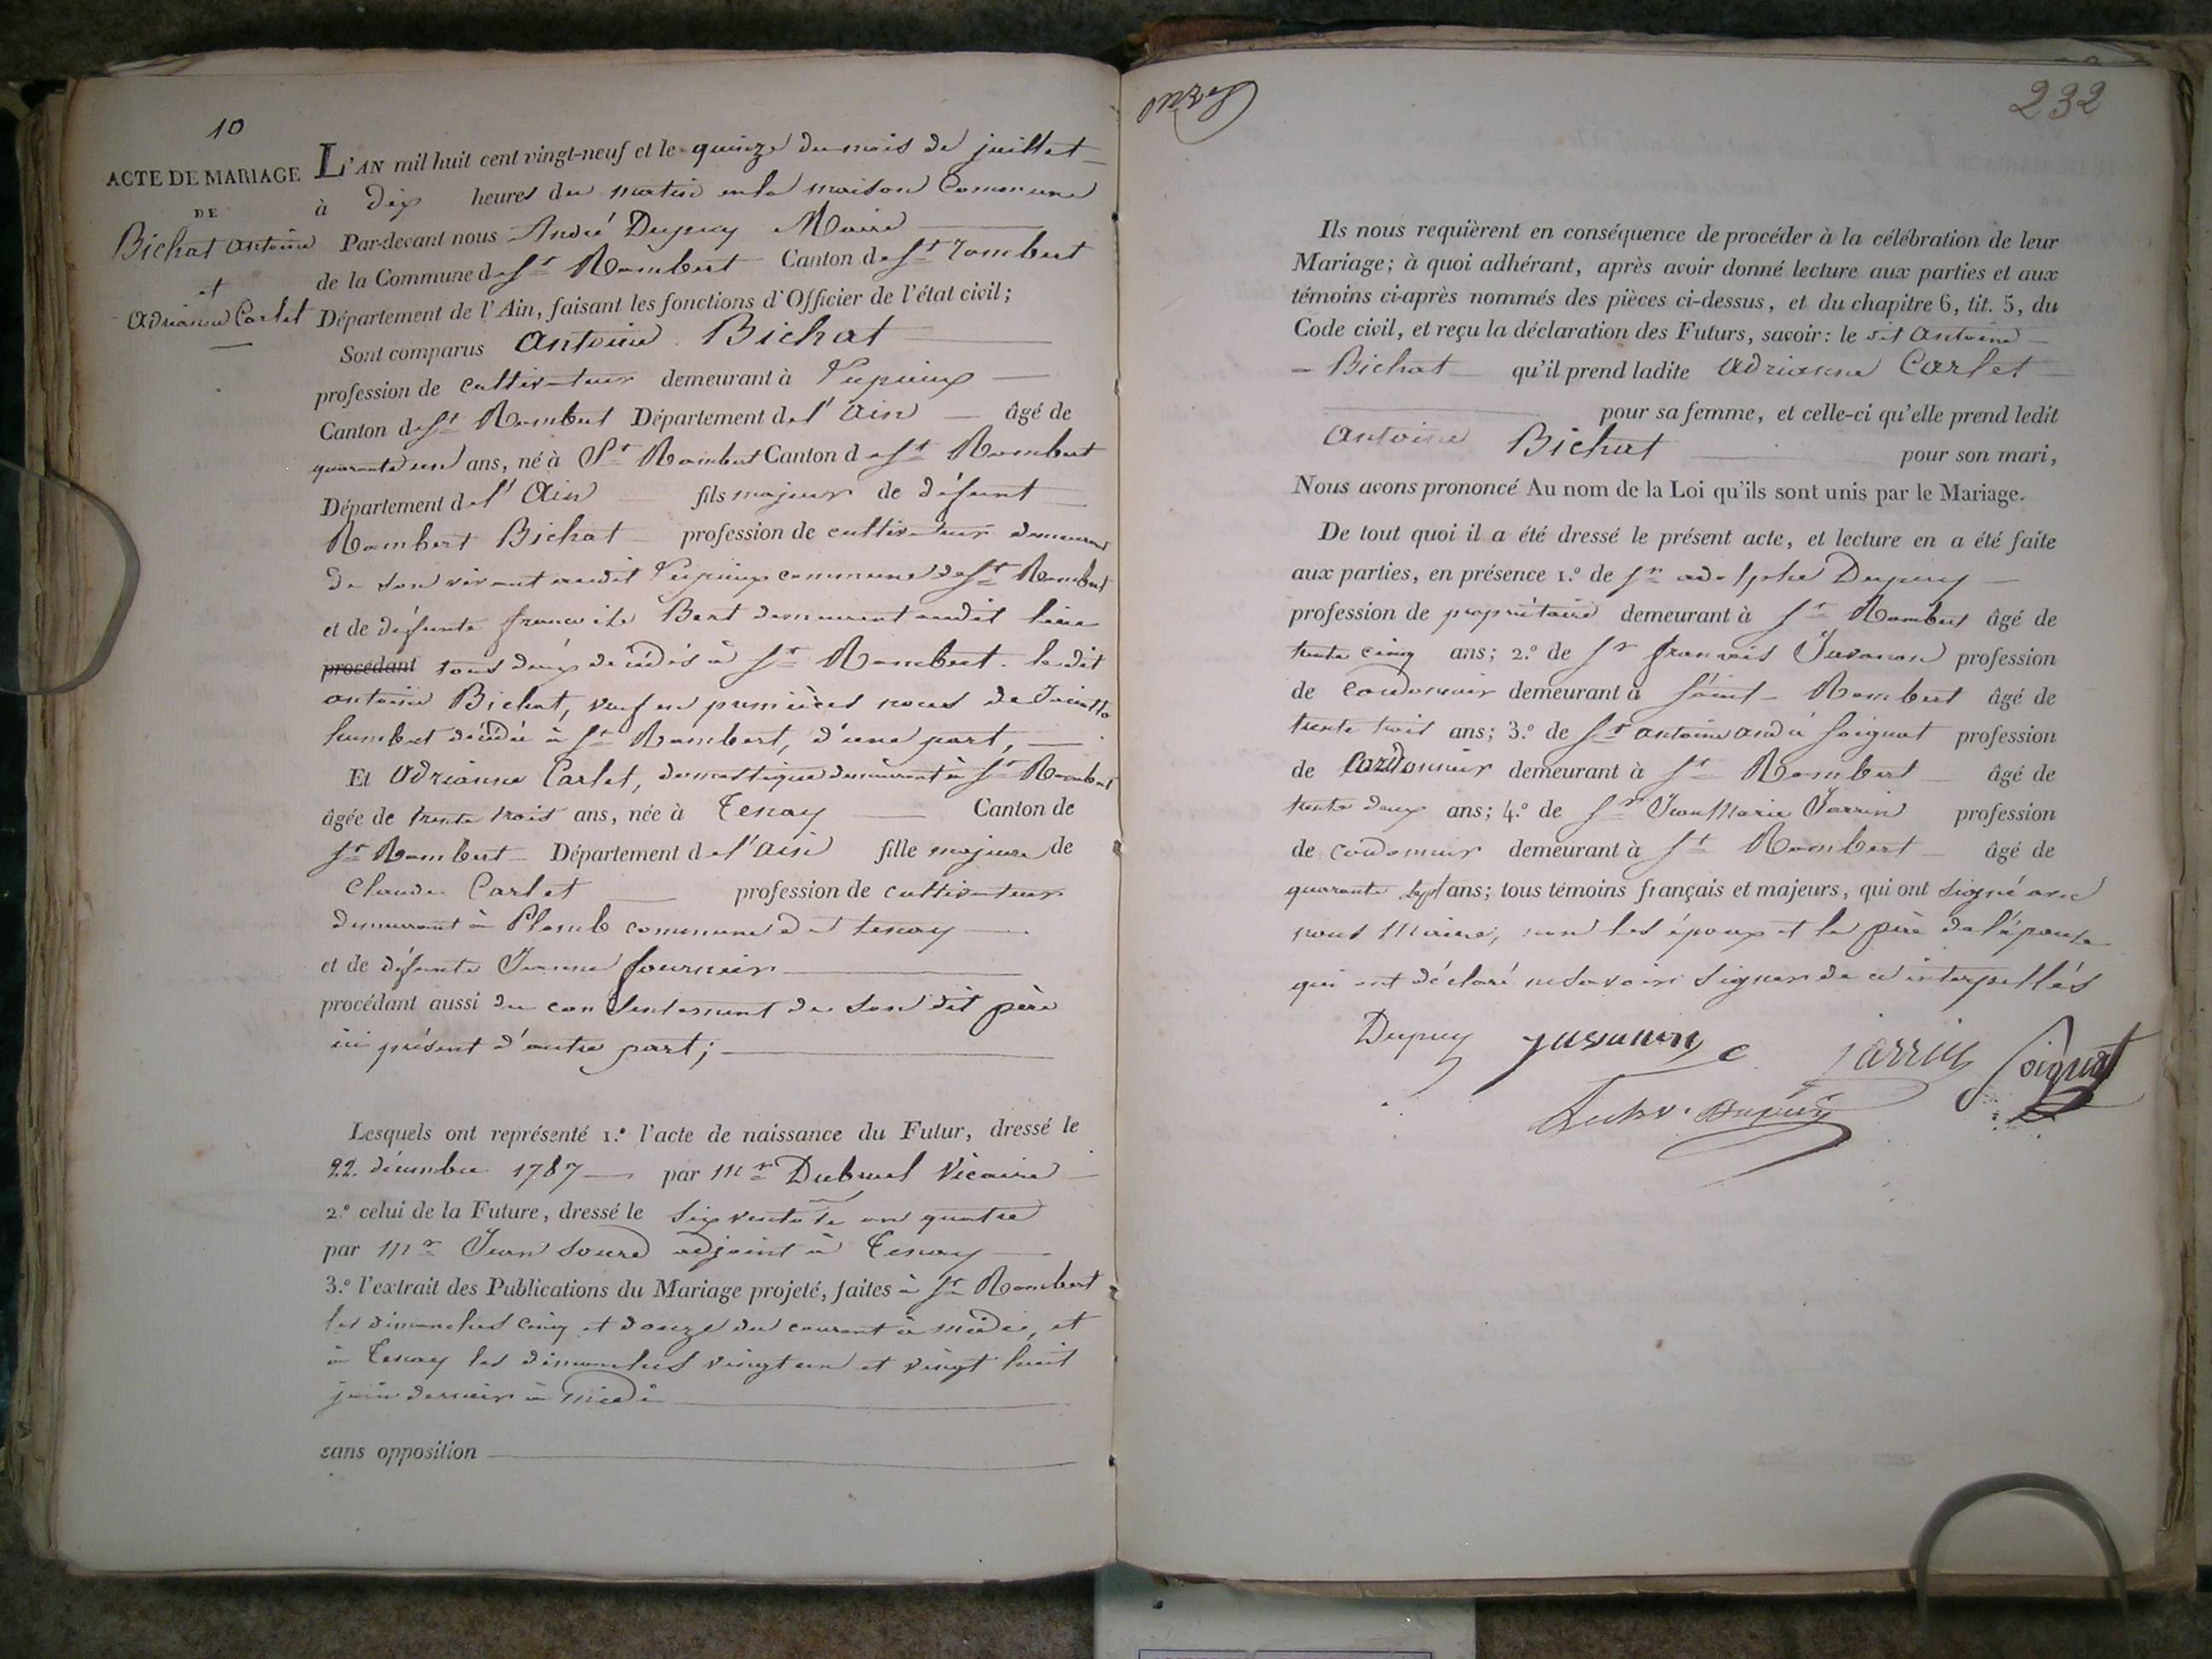 10
ACTE DE MARIAGE
DE
Bichat antoine
et
adrianne Carlet
L'AN mil huit cent vingt-neuf et le quinze du mois de juillet
à dix heures du matin en la maison Commune
Par-devant nous André Dupuy Maire
de la Commune de St Rambert Canton de St rambert
Département de l'Ain, faisant les fonctions d'Officier de l'état civil;
Sont comparus antoine Bichat
profession de cultivateur demeurant à
Canton de St Rambert Département de l' ain âgé de
quarante un ans, né à St Rambert Canton de St Rambert
Département de l' Ain fils majeur de défunt
Rambert Bichat profession de cultivateur demeurant
de son vivant audit commune de St Rambert
et de défunte francoise Bert demeurant audit lieu
procédant tous deux décédés à St Rambert. le dit
antoine Bichat, veuf en premières noces de
humbert décédée à St Rambert, d'une part,
Et adrianne Carlet, domestique demeurant à St Rambert
âgée de trente trois ans, née à Tenay Canton de
St Rambert Département de l'ain fille majeure de
Claude Carlet profession de cultivateur
demeurant à Plomb commune de tenay
et de défunte Jeanne fournier
procédant aussi du consentement de son dit père
ici présent d'autre part;
Lesquels ont représenté 1.° l'acte de naissance du Futur, dressé le
22 décembre 1787 par Mr Dubreul Vicaire
2.° celui de la Future, dressé le six ventose an quatre
par Mr Jean Sourd adjoint à Tenay
3.° l'extrait des Publications du Mariage projeté, faites à St Rambert
les dimanches cinq et douze du courant à midi, et
à Tenay les dimanches vingt un et vingt huit
juin dernier à midi
sans opposition
232
Ils nous requièrent en conséquence de procéder à la célébration de leur
Mariage; à quoi adhérant, après avoir donné lecture aux parties et aux
témoins ci-après nommés des pièces ci-dessus, et du chapitre 6, tit. 5, du
Code civil, et reçu la déclaration des Futurs, savoir: le dit antoine
Bichat qu'il prend ladite adrianne Carlet
pour sa femme, et celle-ci qu'elle prend ledit
antoine Bichat pour son mari,
Nous avons prononcé Au nom de la Loi qu'ils sont unis par le Mariage.
De tout quoi il a été dressé le présent acte, et lecture en a été faite
aux parties, en présence 1.° de Sr adolphe Dupuy
profession de propriétaire demeurant à St Rambert âgé de
trente cinq ans; 2.° de Sr francois Juvanon profession
de cordonnier demeurant à Saint Rambert âgé de
trente trois ans; 3.° de Sr antoine andré Soignat profession
de Cordonnier demeurant à St Rambert âgé de
trente deux ans; 4.° de Sr Jean Marie Jarrin profession
de cordonnier demeurant à St Rambert âgé de
quarante sept ans; tous témoins français et majeurs, qui ont signé avec
nous Maire, non les époux et le père de l'épouse
qui ont déclaré ne savoir signer de ce interpellés
Dupuy juvanon jarrin Soignat
Dupuy